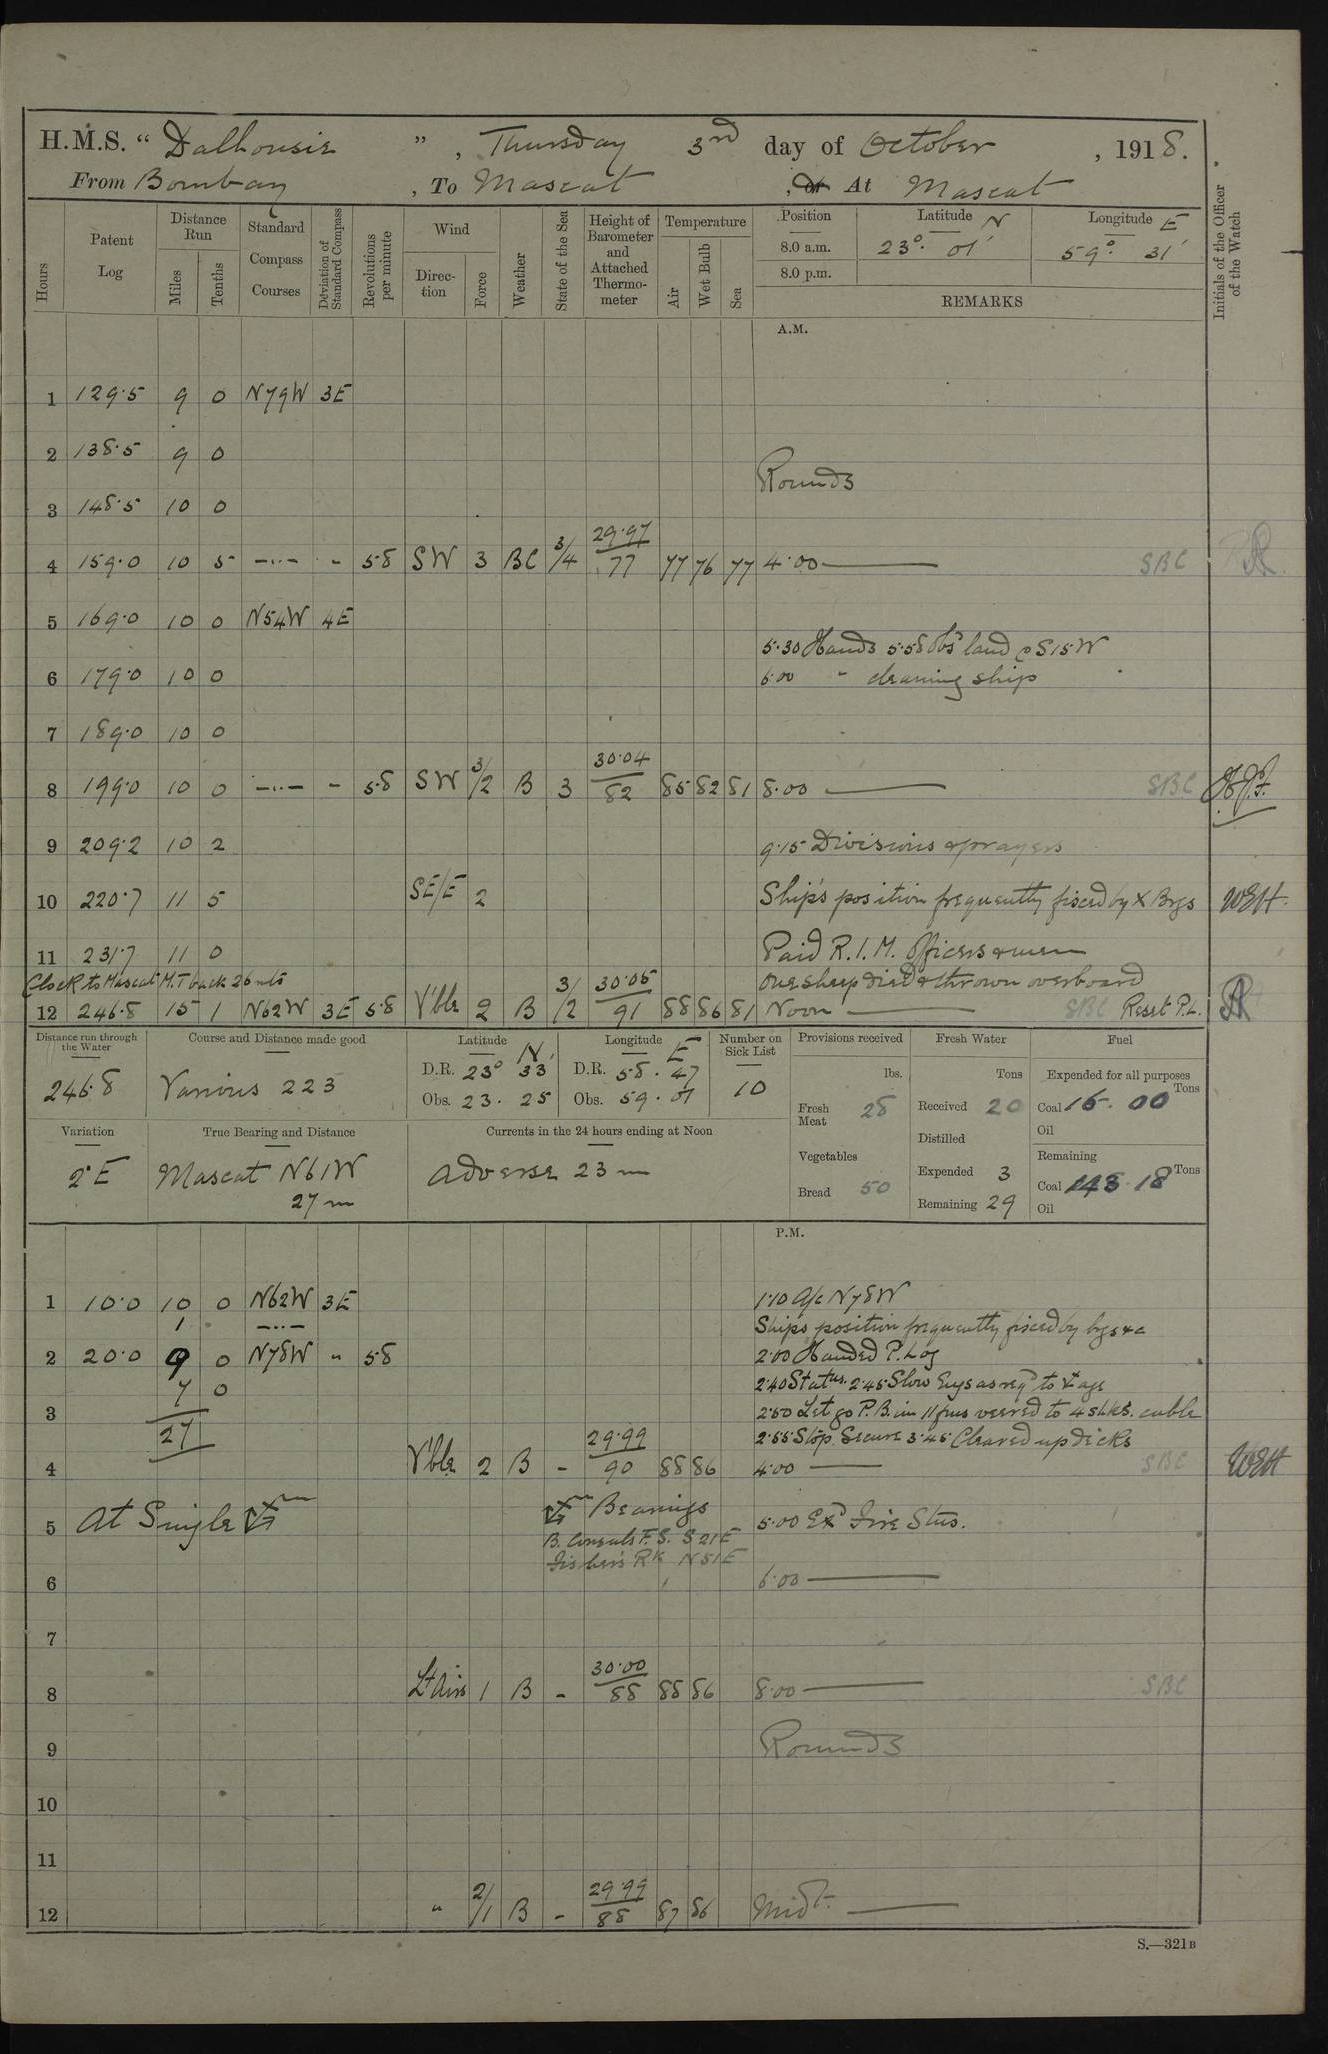 H.M.S. " Dalhousie ", Thursday 3rd day of October, 1918.
From Bombay, To Mascat, or At Mascat
Hours
Patent Log
Distance Run
Miles
Tenths
Standard Compass Courses
Deviation of Standard Compass
Revolutions per minute
Wind
Direction
Force
Weather
State of the Sea
Height of Barometer and Attached Thermometer
Temperature
Air
Wet Bulb
Sea
Position Latitude N Longitude E
8.0 a.m. 23° 01' 59° 31'
8.0 p.m.
REMARKS
Initials of the Officer of the Watch
A.M.
1 129.5 9 0 N79W 3E
2 138.5 9 0
Rounds
3 148.5 10 0
4 159.0 10 5 -..- - 58 SW 3 BC 3/4 29.97 77 77 76 77 4.00 SBC
5 169.0 10 0 N54W 4E
5.30 Hands 5.58 Obsd land @ S15W
6 179.0 10 0 6.00 " cleaning ship
7 189.0 10 0
8 199.0 10 0 -..- - 58 SW 3/2 B 3 30.04 82 85 82 81 8.00 SBC
9 209.2 10 2 9.15 Divisions & prayers
10 220.7 11 5 SE/E 2 Ship's position frequently fixed by X Brgs WEH
11 231.7 11 0 Paid R.I.M. Officers & men
Clock to Mascat M.T back 26 mts
One sheep died & thrown overboard
12 246.8 15 1 N62W 3E 58 V'ble 2 B 3/2 30.05 91 88 86 81 Noon SBC Reset P.L.
Distance run through the Water
246.8
Course and Distance made good
Various 223
Latitude N
D.R. 23° 33'
Obs. 23. 25
Longitude E
D.R. 58. 47
Obs. 59. 01
Number on Sick List
10
Provisions received
lbs.
Fresh Meat 28
Vegetables
Bread 50
Fresh Water
Tons
Received 20
Distilled
Expended 3
Remaining 29
Fuel
Expended for all purposes
Tons
Coal 16.00
Oil
Remaining
Tons
Coal 148.18
Oil
Variation
2°E
True Bearing and Distance
Mascat N61W
27 m
Currents in the 24 hours ending at Noon
Adverse 23 m
P.M.
1 10.0 10 0 N62W 3E 1.10 A/c N78W
1 -..- Ships position frequently fixed by brgs &c
2 20.0 9 0 N78W " 58 2.00 Handed P. Log
7 0 2.40 Statns. 2.45 Slow Engs as reqd to ⚓ age
3 2.50 Let go P.B. in 11 fms veered to 4 shks. cable
27 2.55 Stop Secure 3.45 Cleared up decks
4 V'ble 2 B - 29.99 90 88 86 4.00 SBC WEH
5 At Single ⚓ ⚓ Bearings 5.00 Exd Fire Stns.
B. Consuls F.S. S21E
Fishers Rk N51E
6 6.00
7
8 Lt Airs 1 B - 30.00 88 88 86 8.00 SBC
9 Rounds
10
11
12 " 2/1 B - 29.99 88 87 86 Midt.
S.—321B